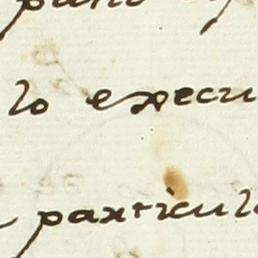 lo execu
particul